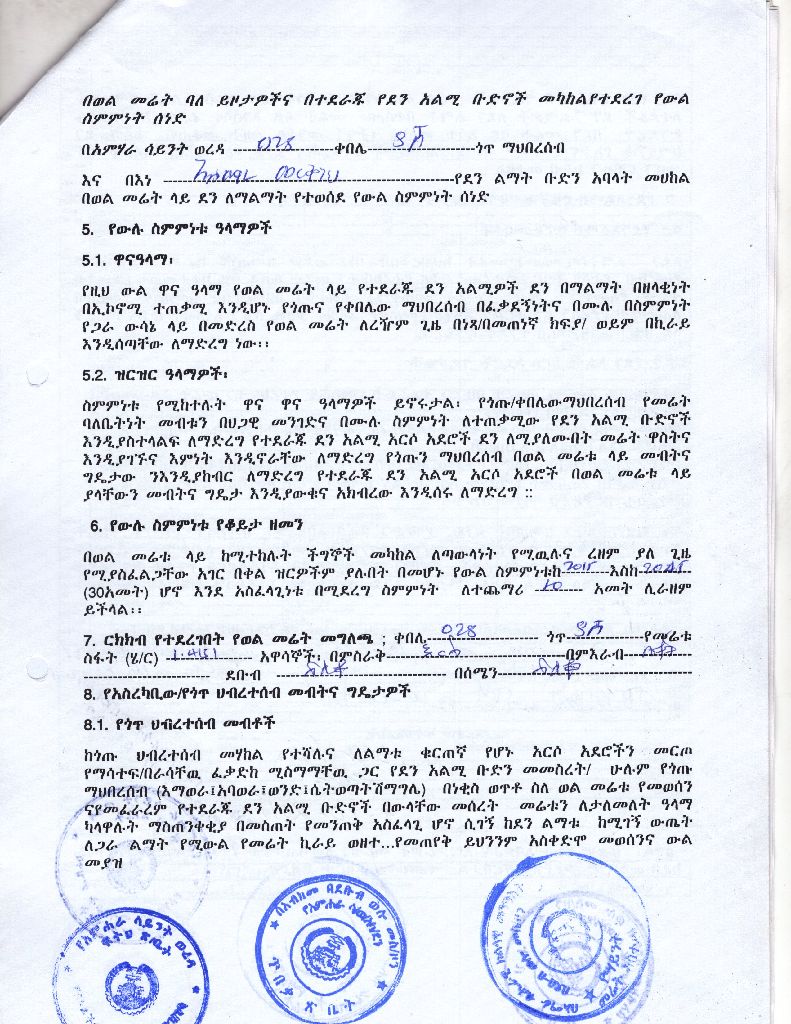 በወል መሬት ባለ ይዞታዎችና በተደራጁ የደን አልሚ ቡድኖች መካከልየተደረገ የውል
ስምምነት ሰነድ
በአምሃራ ሳይንት ወረዳ ------------028------------ቀበሌ------------------------ጎጥ ማህበረሰብ
እና በእነ ------------------------------------------------የደን ልማት ቡድን አባላት መሀከል
በወል መሬት ላይ ደን ለማልማት የተወሰደ የውል ስምምነት ሰነድ
5. የውሉ ስምምነቱ ዓላማዎች
5.1. ዋናዓላማ፡
የዚህ ውል ዋና ዓላማ የወል መሬት ላይ የተደራጁ ደን አልሚዎች ደን በማልማት በዘላቂነት
በኢኮኖሚ ተጠቃሚ እንዲሆኑ የጎጡና የቀበሌው ማህበረሰብ በፈቃደኝነትና በሙሉ በስምምነት
የጋራ ውሳኔ ላይ በመድረስ የወል መሬት ለረዥም ጊዜ በነጻ/በመጠነኛ ክፍያ/ ወይም በኪራይ
እንዲሰጣቸው ለማድረግ ነው፡፡
5.2. ዝርዝር ዓላማዎች፡
ስምምነቱ የሚከተሉት ዋና ዋና ዓላማዎች ይኖሩታል፡ የጎጡ/ቀበሌውማህበረሰብ የመሬት
ባለቤትነት መብቱን በህጋዊ መንገድና በሙሉ ስምምነት ለተጠቃሚው የደን አልሚ ቡድኖች
እንዲያስተላልፍ ለማድረግ የተደራጁ ደን አልሚ አርሶ አደሮች ደን ለሚያለሙበት መሬት ዋስትና
እንዲያገኙና እምነት እንዲኖራቸው ለማድረግ የጎጡን ማህበረሰብ በወል መሬቱ ላይ መብትና
ግዴታው ንእንዲያከብር ለማድረግ የተደራጁ ደን አልሚ አርሶ አደሮች በወል መሬቱ ላይ
ያላቸውን መብትና ግዴታ እንዲያውቁና አክብረው እንዲሰሩ ለማድረግ ::
6. የውሉ ስምምነቱ የቆይታ ዘመን
በወል መሬቱ ላይ ከሚተከሉት ችግኞች መካከል ለጣውላነት የሚዉሉና ረዘም ያለ ጊዜ
የሚያስፈልጋቸው አገር በቀል ዝርዎችም ያሉበት በመሆኑ የውል ስምምነቱከ---2015---እስከ---2045---
(30አመት) ሆኖ እንደ አስፈላጊነቱ በሚደረግ ስምምነት ለተጨማሪ ---10--- አመት ሊራዘም
ይችላል፡፡
7. ርክክብ የተደረገበት የወል መሬት መግለጫ ; ቀበሌ---028------------ ጎጥ------------የመሬቱ
ስፋት (ሄ/ር) ------------ አዋሳኞች፡ በምስራቅ------------------------በምእራብ------------
------------------ ደቡብ ------------------------ በሰሜን------------------------
8. የአስረካቢው/የጎጥ ህብረተሰብ መብትና ግዴታዎች
8.1. የጎጥ ህብረተሰብ መብቶች
ከጎጡ ህብረተሰብ መሃከል የተሻሉና ለልማቱ ቁርጠኛ የሆኑ አርሶ አደሮችን መርጦ
የማሳተፍ/በራሳቸዉ ፈቃድከ ሚስማማቸዉ ጋር የደን አልሚ ቡድን መመስረት/ ሁሉም የጎጡ
ማህበረሰብ (እማወራ፤አባወራ፣ወንድ፤ሴትወጣትሽማግሌ) በነቂስ ወጥቶ ስለ ወል መሬቱ የመወሰን
ናየመፈራረም የተደራጁ ደን አልሚ ቡድኖች በውላቸው መሰረት መሬቱን ለታለመለት ዓላማ
ካላዋሉት ማስጠንቀቂያ በመስጠት የመንጠቅ አስፈላጊ ሆኖ ሲገኝ ከደን ልማቱ ከሚገኝ ውጤት
ለጋራ ልማት የሚውል የመሬት ኪራይ ወዘተ...የመጠየቅ ይህንንም አስቀድሞ መወሰንና ውል
መያዝ
የአምሐራ ሳይንት ወረዳ
ፍትህ ጽ/ቤት
በአብክመ በደቡብ ወሎ መስ/ዞን